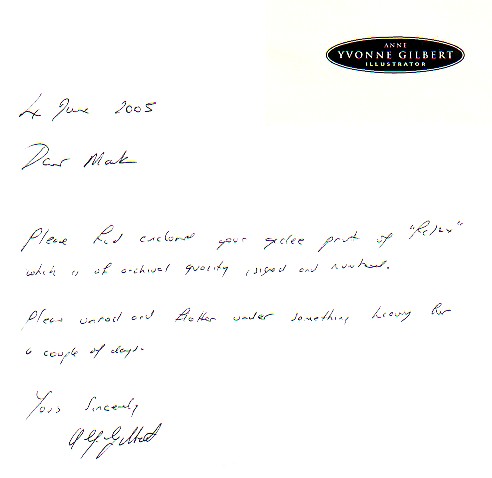 ANNE
YVONNE GILBERT
ILLUSTRATOR
4 June 2005
Dear Mark
Please find enclosed your giclee print of "Relax"
which is of archival quality, signed and numbered.
Please unroll and flatten under something heavy for
a couple of days.
Yours Sincerely
A Y Gilbert